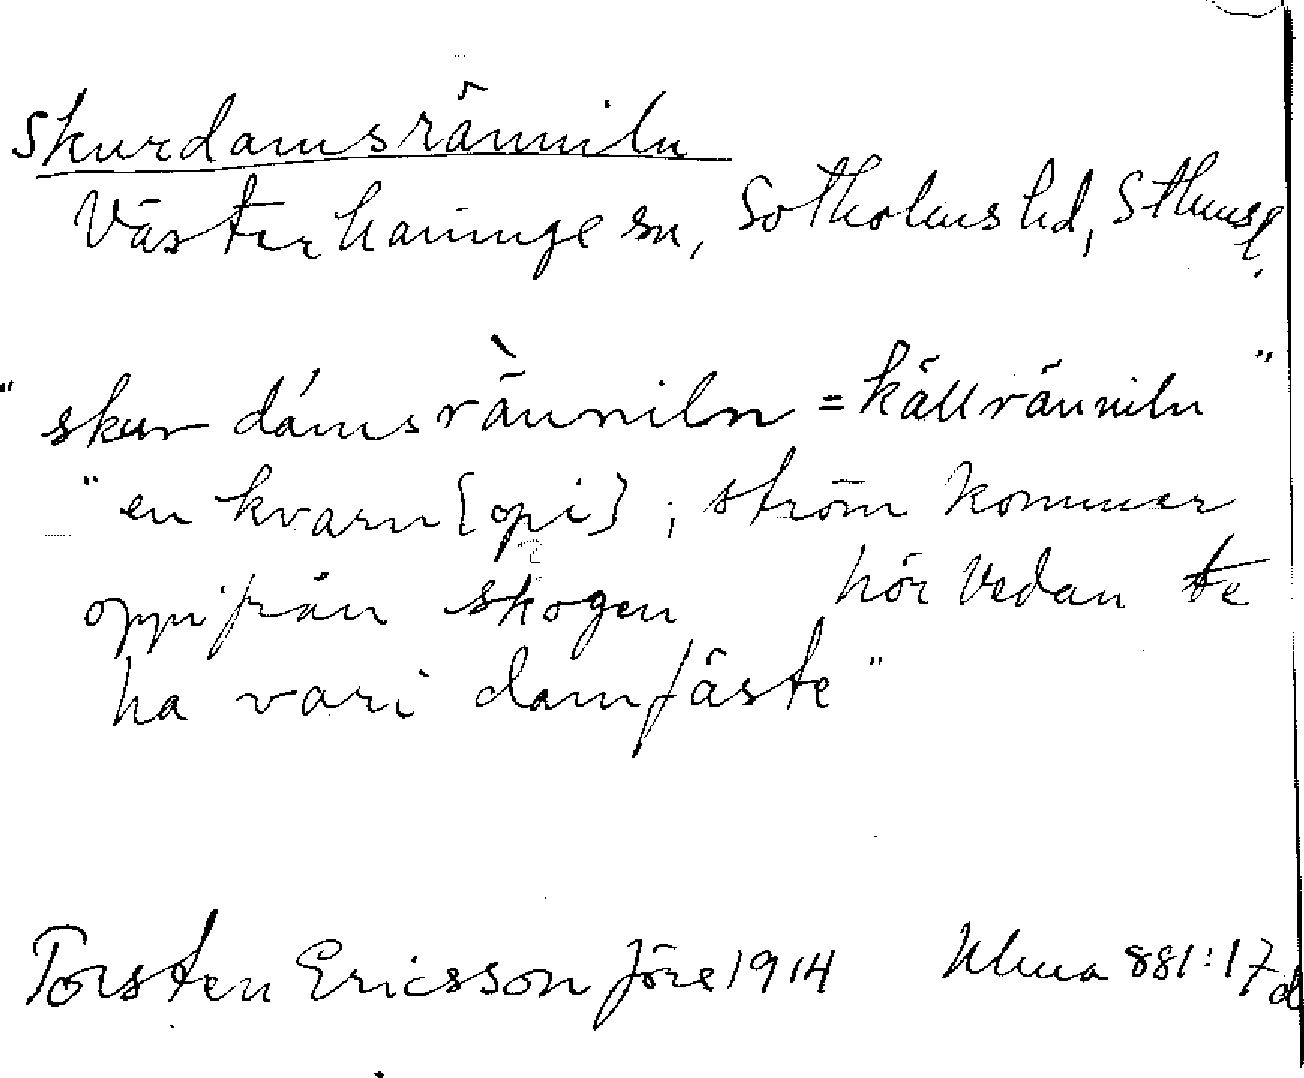 Skurdamsränniln
Västerhaninge sn, Sotholms hd, Sthmsl.
"skur dámsrä̀nniln = källränniln"
"en kvarn [opi] ; ström kommer
oppifrån skogen hör vedan te
ha vari damfäste"
Torsten Ericsson före 1914 Ulma 881:17d